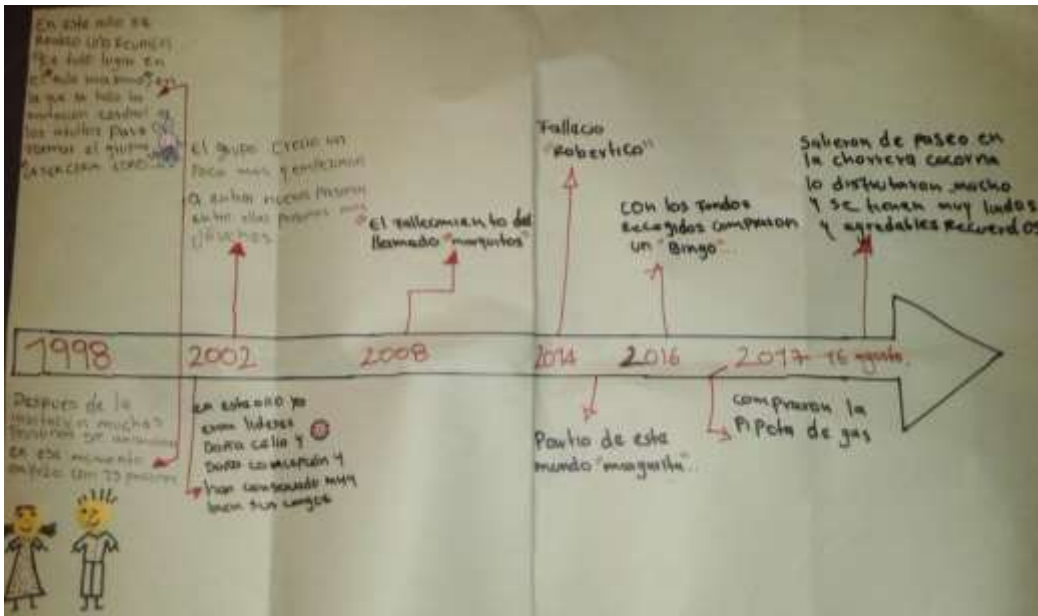 En este año se
realizo una reunion
que tubo lugar en
el "aula maxima" en
la que se hizo la
invitacion cordial a
los adultos para
formar el grupo
El grupo crecio un
poco mas y empezaron
a entrar nuevas personas
entre ellas personas mas
jovenes
El fallecimiento del
llamado "marquitos"
Fallecio
"Robertico"
con los fondos
Recogidos compraron
un "Bingo"..
Salieron de paseo en
la chorrera cocorna
lo disfrutaron mucho
y se tienen muy lindos
y agradables Recuerdos
1998
2002
2008
2014
2016
2017- 16 agosto.
Despues de la
invitacion muchas
personas se
en ese momento
empezo con 75
en este año ya
eran lideres
Doña celia y
Doña concepcion y
han conservado muy
bien sus cargos
Partio de este
mundo "margarita"..
compraron la
Pipeta de gas